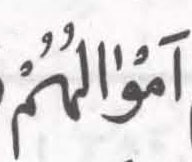 اَمْوٰالُهُمْ